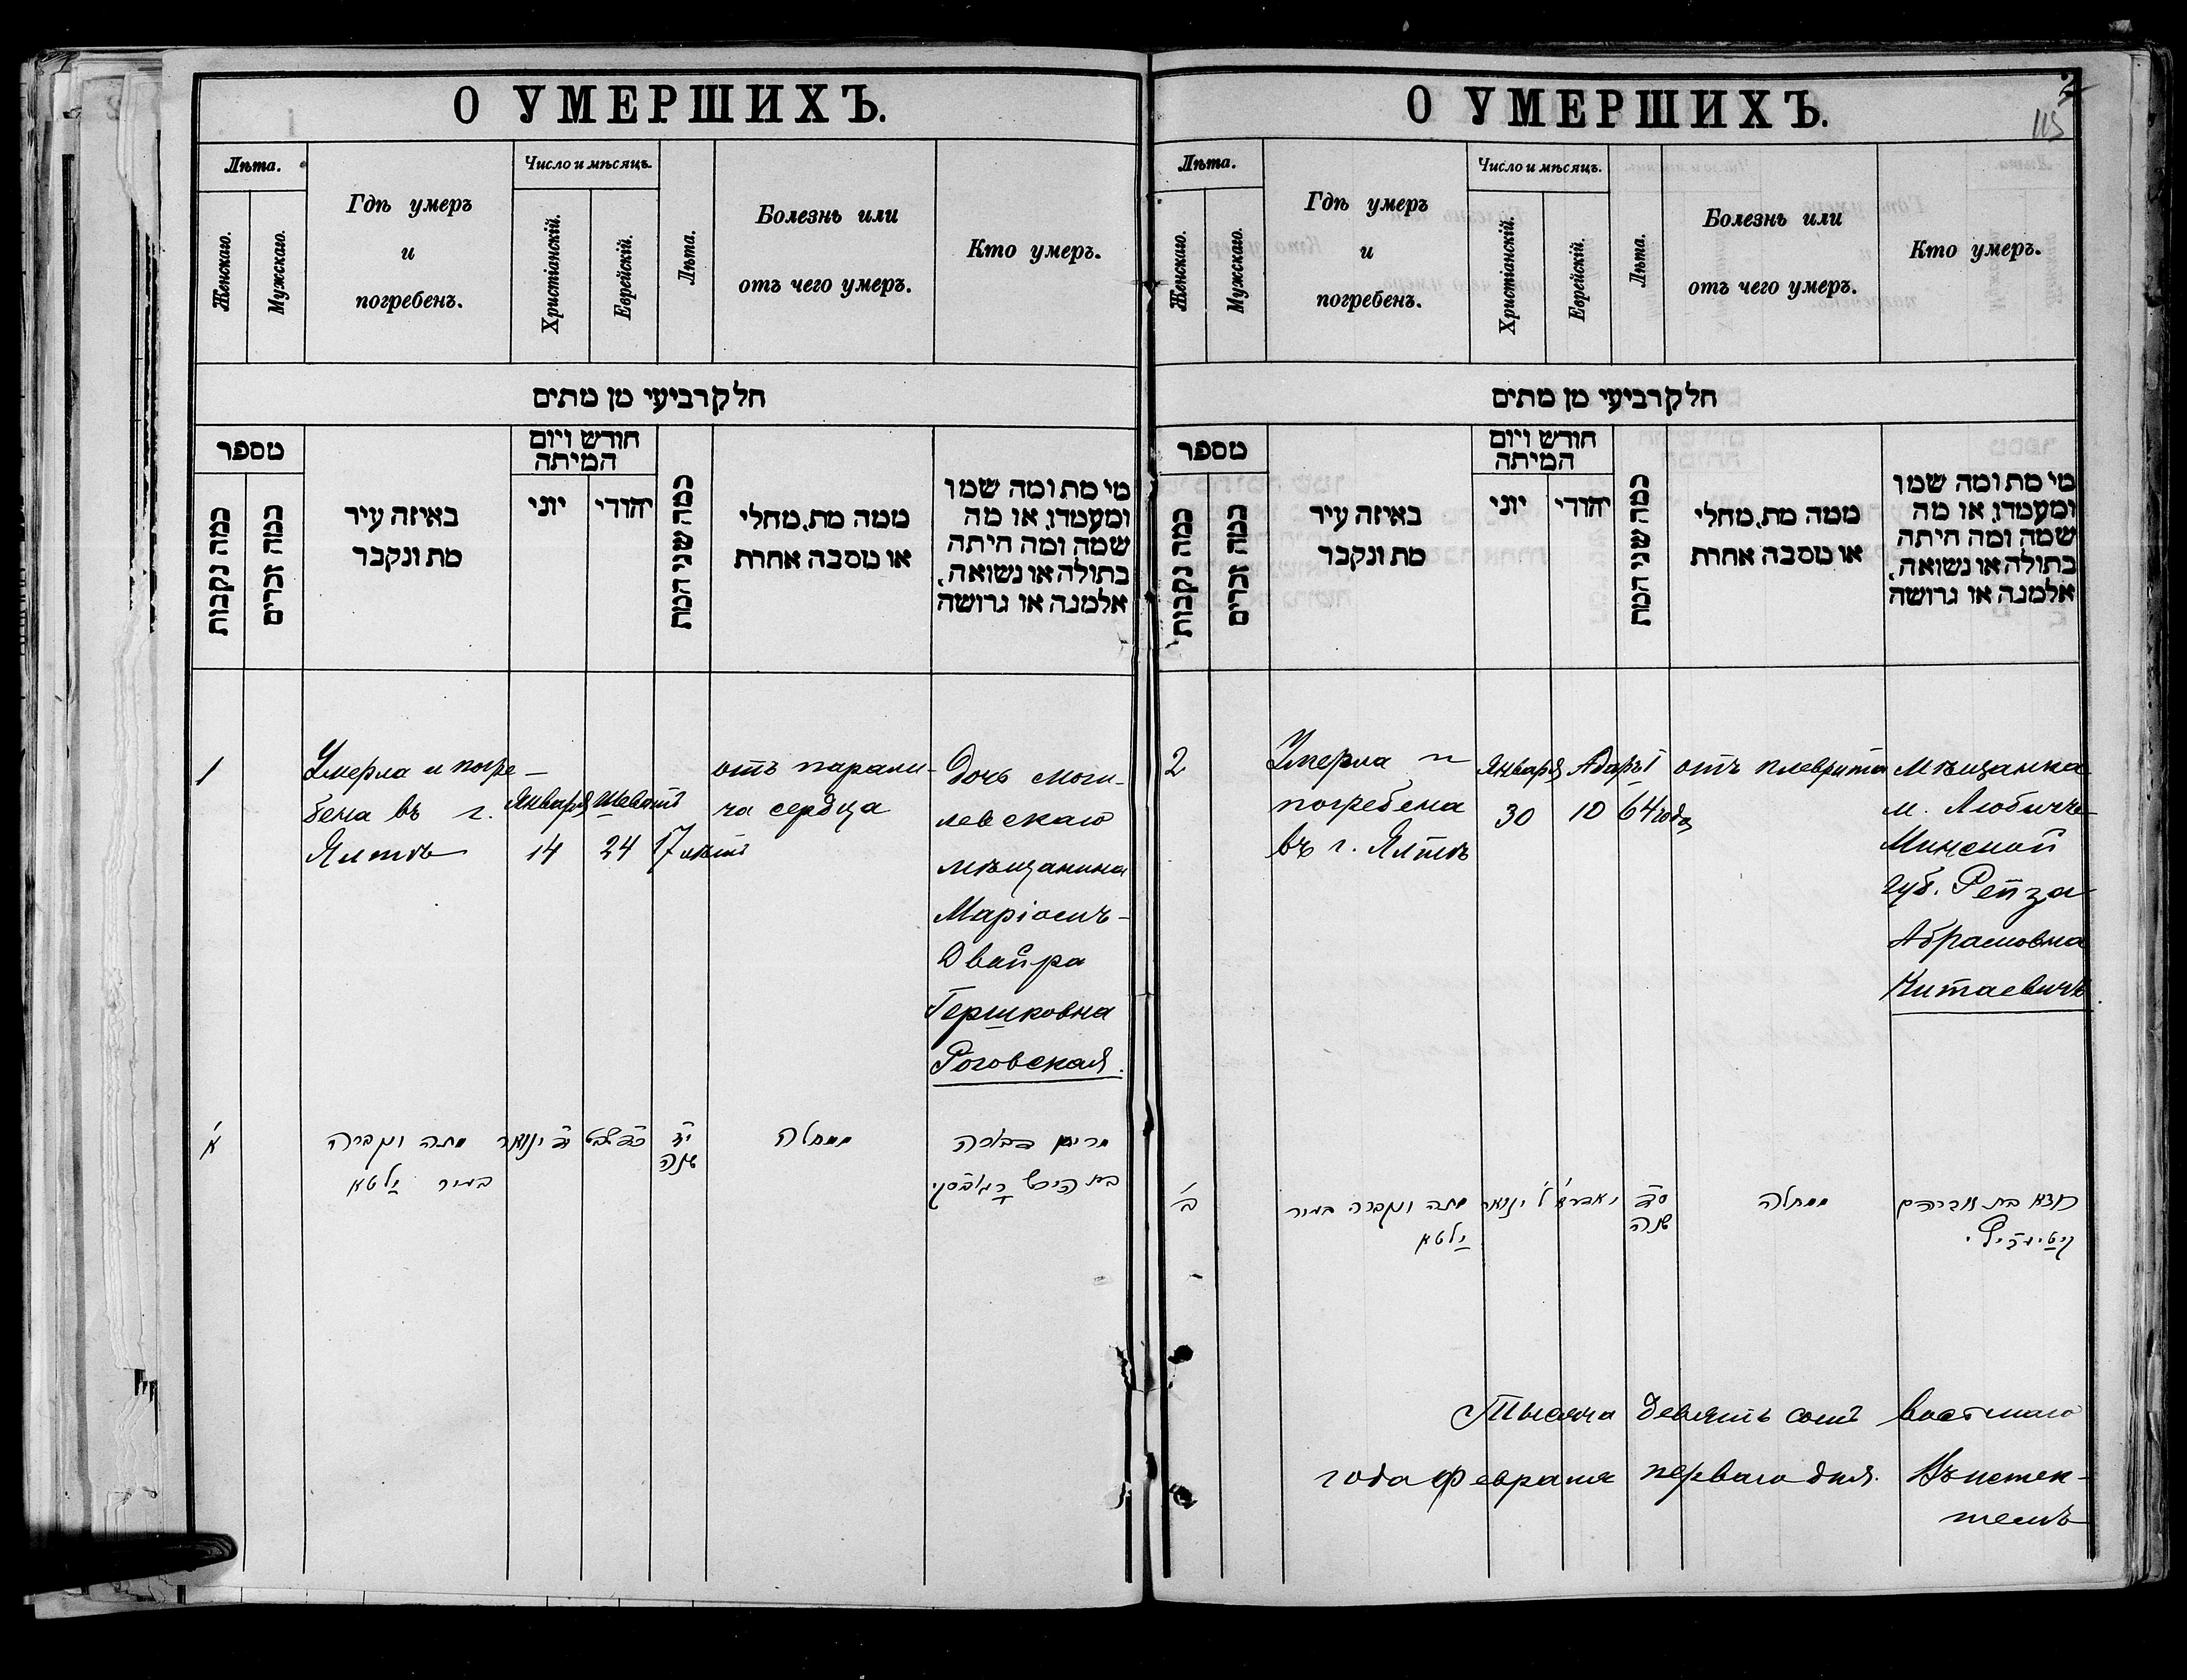 О УМЕРШИХЪ.
Лѣта.
Женскаго.
Мужскаго.
Гдѣ умеръ
и
погребенъ.
Число и мѣсяцъ.
Христіанскій.
Еврейскій.
Лѣта.
Болезнь или
отъ чего умеръ.
Кто умеръ.
חלק רביעי מן מתים
מספר
כמה נקבות
כמה זכרים
באיזה עיר
מת ונקבר
חודש ויום
המיתה
יוני
יהודי
כמה שני המת
ממה מת, מחלי
או מסבה אחרת
מי מת ומה שמו
ומעמדו, או מה
שמה ומה היתה
בתולה או נשואה,
אלמנה או גרושה
1
Умерла и погре-
бена въ г.
Ялтѣ
Января
14
Шеватъ
24
17 лѣтъ
отъ парали-
ча сердца
Дочь моги-
левскаго
мѣщанина
Маріосъ-
Двейра
Гершковна
Роговская.
א'
מתה ונקברה
בעיר ילטא
יד ינואר
כד שבט
יז
שנה
ממחלה
מרים דבורה
בת הירש ראגאווסקי
О УМЕРШИХЪ.
2
115
Лѣта.
Женскаго.
Мужскаго.
Гдѣ умеръ
и
погребенъ.
Число и мѣсяцъ.
Христіанскій.
Еврейскій.
Лѣта.
Болезнь или
отъ чего умеръ.
Кто умеръ.
חלק רביעי מן מתים
מספר
כמה נקבות
כמה זכרים
באיזה עיר
מת ונקבר
חודש ויום
המיתה
יוני
יהודי
כמה שני המת
ממה מת, מחלי
או מסבה אחרת
מי מת ומה שמו
ומעמדו, או מה
שמה ומה היתה
בתולה או נשואה,
אלמנה או גרושה
2
Умерла и
погребена
въ г. Ялтѣ
Января
30
Адаръ I
10
64 года
отъ плеврита
Мѣщанка
м. Любичъ
Минской
губ. Рейза
Абрамовна
Китаевичъ.
ב'
מתה ונקברה בעיר
ילטא
ל' ינואר
י אדר א'
סד
שנה
ממחלה
רוזא בת אברהם
קיטייעוויץ
Тысяча девять сотъ восьмаго
года Февраля перваго дня. Въ истек-
шемъ